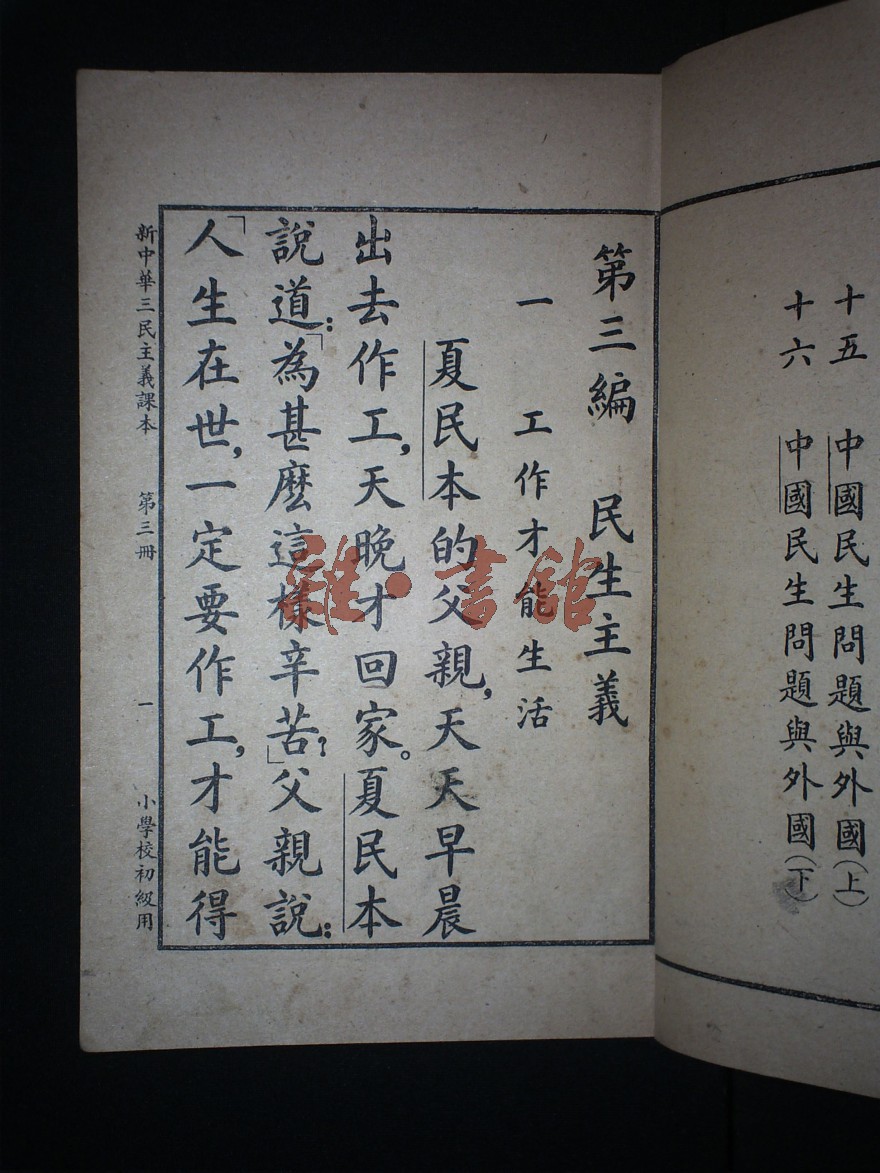 十五　中國民生問題與外國（上）
十六　中國民生問題與外國（下）
第三編　民生主義
一　工作才能生活
夏民本的父親，天天早晨
出去作工，天晚才回家。夏民本
說道：「為甚麼這樣辛苦？」父親說：
「人生在世，一定要作工，才能得
新中華三民主義課本　第三冊　一　小學校初級用
雜·書館